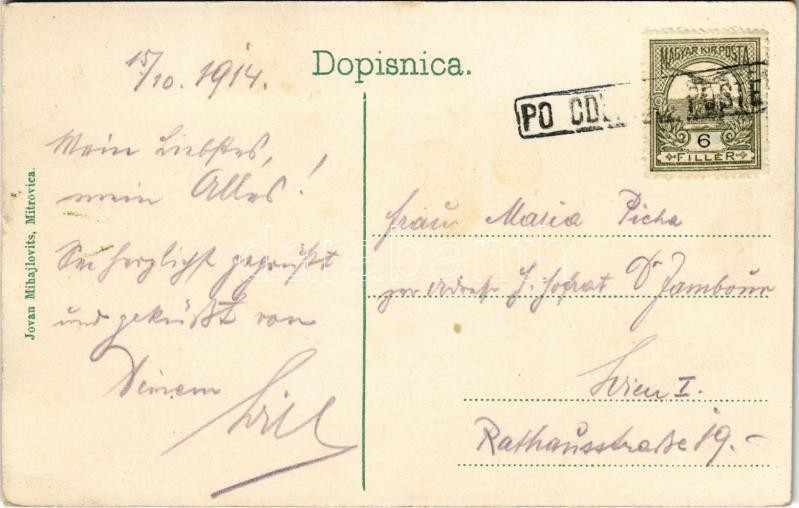 15/10. 1914.
Mein Liebstes,
mein Alles!
Sei herzlichst gegrüßt
und geküßt von
Deinem
Willi
Jovan Mihajlovits, Mitrovica.
Dopisnica.
MAGYAR KIR. POSTA
6
FILLÉR
PO CD POSTE
Frau Maria Picha
per Adresse H. Hofrat Dr Jambour
Wien I.
Rathausstraße 19.-
darabanth